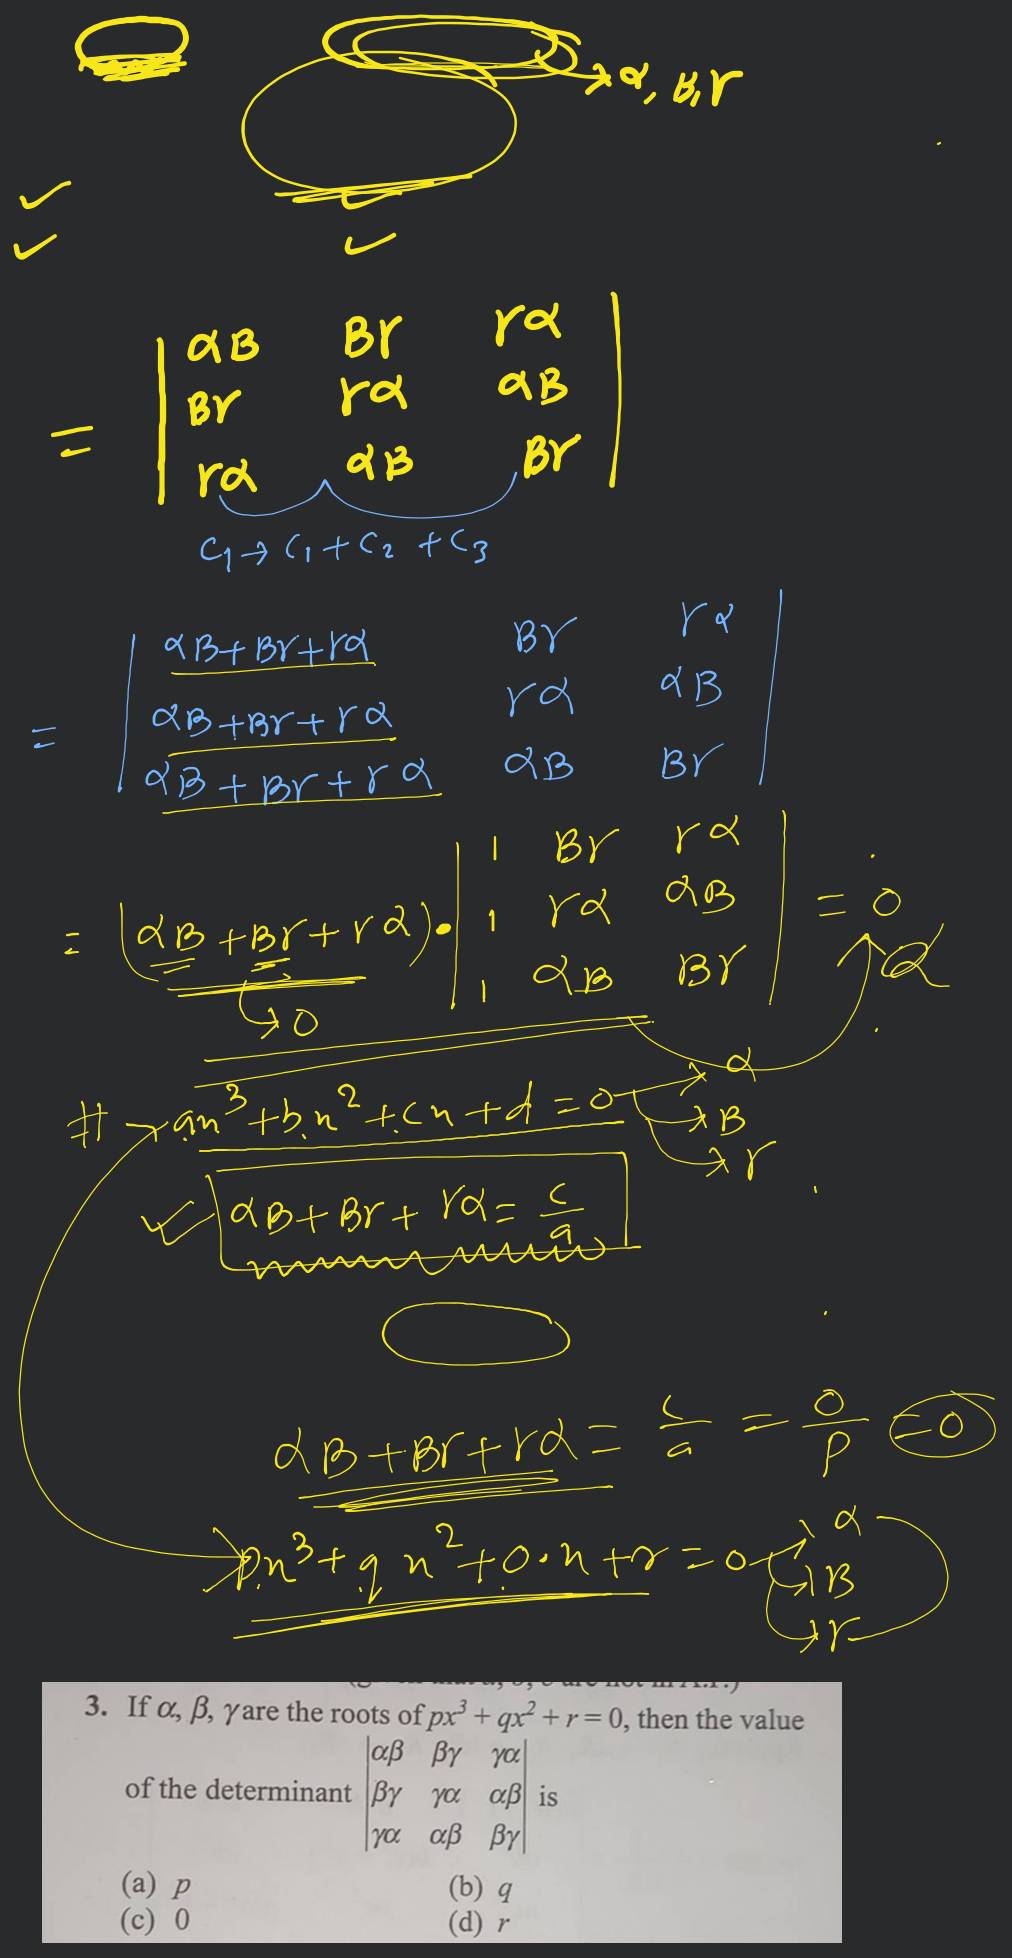 → α, β, γ
= | αβ βγ γα |
| βγ γα αβ |
| γα αβ βγ |
C₁ → C₁ + C₂ + C₃
= | αβ+βγ+γα βγ γα |
| αβ+βγ+γα γα αβ |
| αβ+βγ+γα αβ βγ |
= (αβ+βγ+γα)· | 1 βγ γα | = 0
| 1 γα αβ |
| 1 αβ βγ |
→ 0
# → ax³+bx²+cx+d=0 → α
→ β
→ γ
αβ+βγ+γα = c/a
αβ+βγ+γα = c/a = 0/p = 0
px³+qx²+0·x+r=0 → α
→ β
→ γ
3. If α, β, γ are the roots of px³ + qx² + r = 0, then the value
of the determinant |αβ βγ γα|
|βγ γα αβ| is
|γα αβ βγ|
(a) p (b) q
(c) 0 (d) r